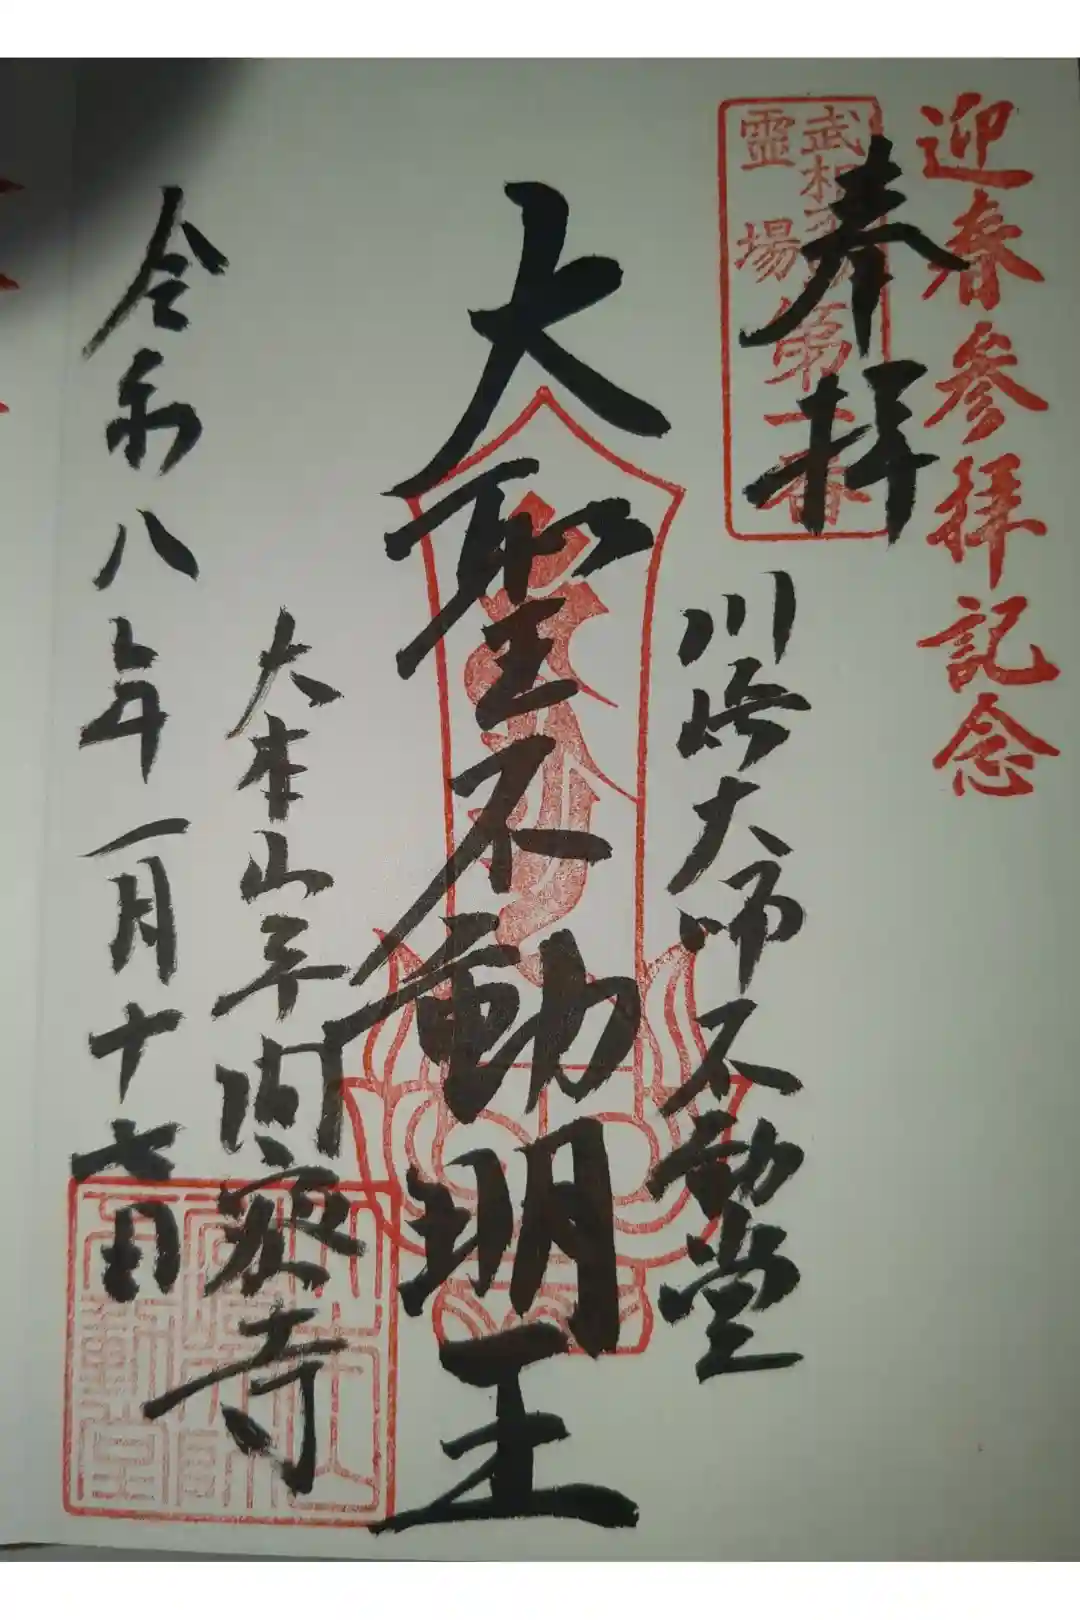 迎春参拝記念
奉拝
武相不動
霊場
第一番
川崎大師不動堂
大聖不動明王
大本山平間寺
令和八年一月十七日